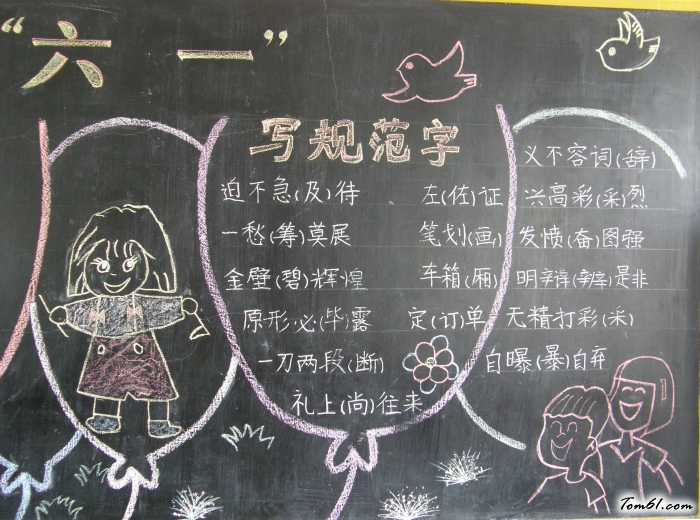 “六一”
写规范字
迫不急(及)待
一愁(筹)莫展
金壁(碧)辉煌
原形必(毕)露
一刀两段(断)
礼上(尚)往来
左(佐)证
笔划(画)
车箱(厢)
定(订)单
义不容词(辞)
兴高彩(采)烈
发愤(奋)图强
明辩(辨)是非
无精打彩(采)
自曝(暴)自弃
Tom61.com